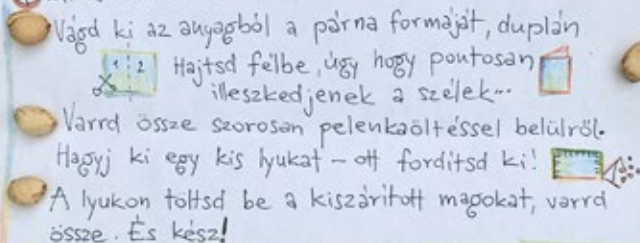 Vágd ki az anyagból a párna formáját, duplán
1 2 Hajtsd félbe, úgy hogy pontosan
illeszkedjenek a szélek...
Varrd össze szorosan pelenkaöltéssel belülről.
Hagyj ki egy kis lyukat – ott fordítsd ki!
A lyukon töltsd be a kiszárított magokat, varrd
össze. És kész!